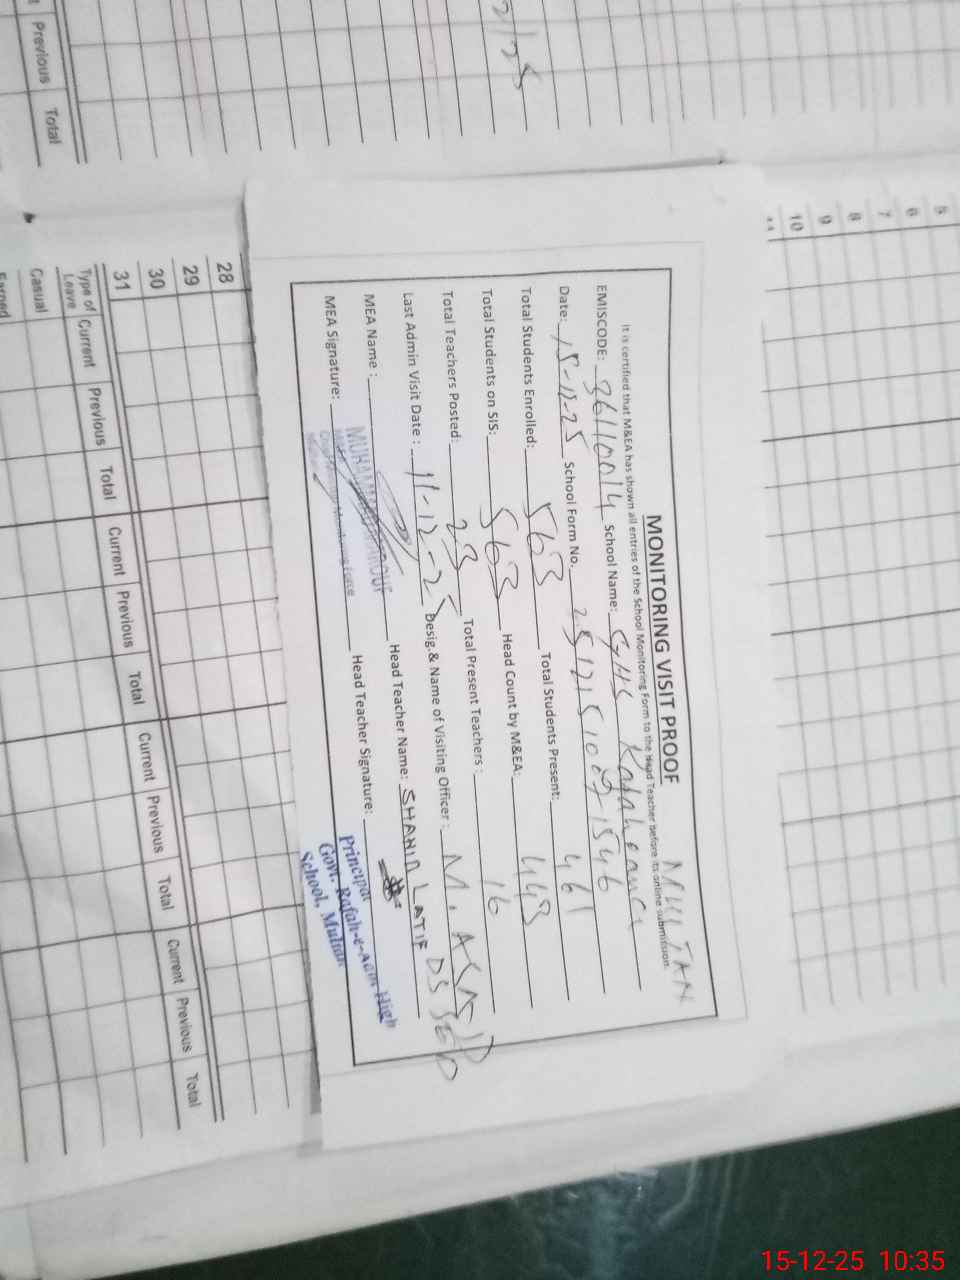 MONITORING VISIT PROOF
It is certified that M&EA has shown all entries of the School Monitoring Form to the Head Teacher before its online submission.
MULTAN
EMISCODE: 36110014 School Name: GHS
Date: 15-12-25 School Form No. 25121510091546
Total Students Enrolled: 563 Total Students Present: 461
Total Students on SIS: 563 Head Count by M&EA: 443
Total Teachers Posted: 23 Total Present Teachers : 16
Last Admin Visit Date : 11-12-25 Desig.& Name of Visiting Officer : M.
MEA Name : Head Teacher Name: SHAHID LATIF
MEA Signature: Head Teacher Signature:
Principal
Govt. Rafah-e-Aam High
School, Multan
Previous
Total
5
6
7
8
9
10
28
29
30
31
Type of Leave Current Previous Total Current Previous Total Current Previous Total Current Previous Total
Casual
Earned
15-12-25 10:35